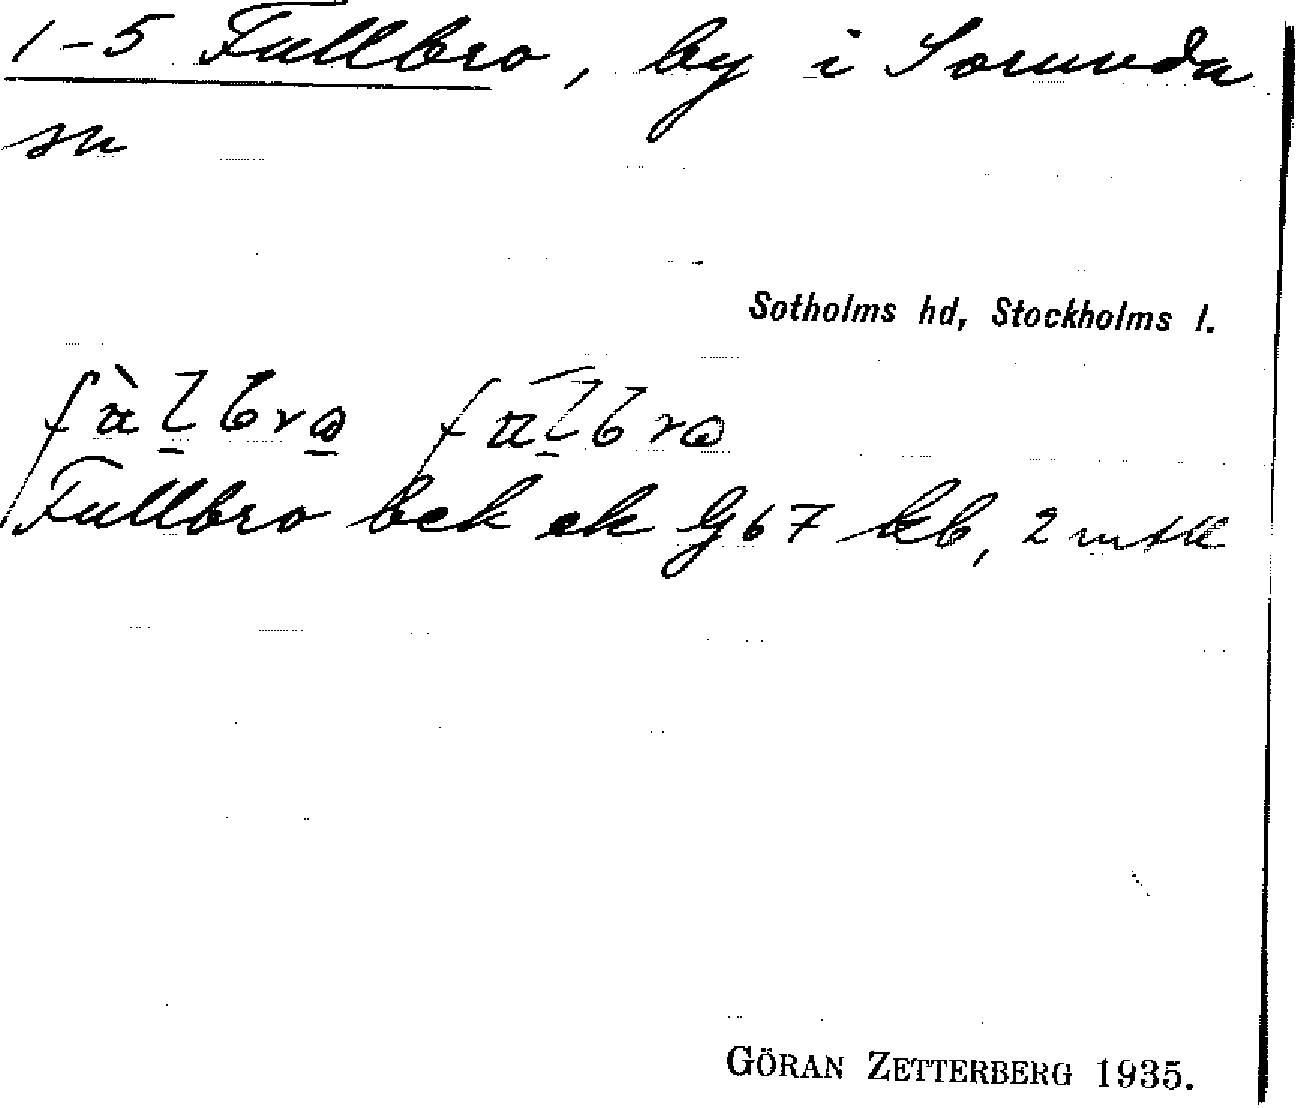 1-5 Fullbro, by i Sorunda
sn
Sotholms hd, Stockholms l.
Fullbro bek ek G67 kb, 2 mtl
GÖRAN ZETTERBERG 1935.